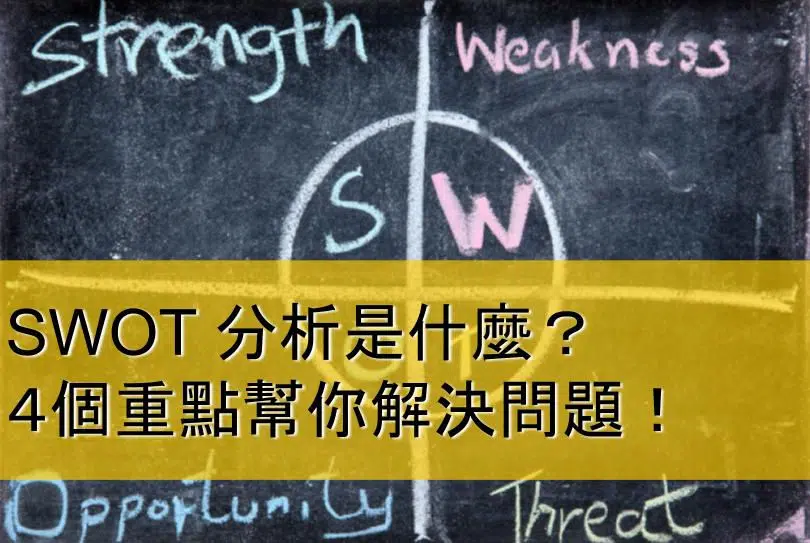 Strength
Weakness
S W
SWOT 分析是什麼?
4個重點幫你解決問題!
Opportunity
Threat